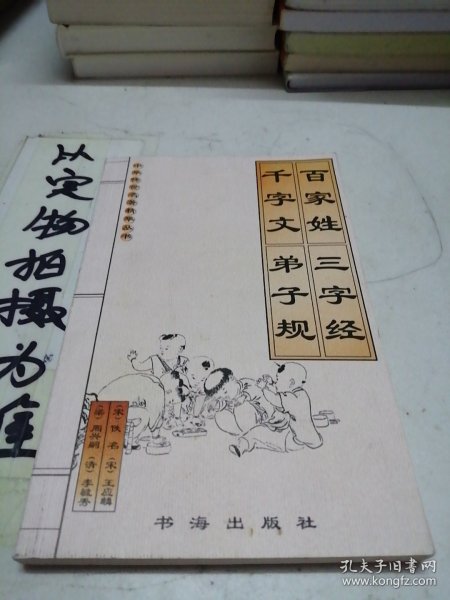 以实物拍摄为准
中华传世名著精华丛书
百家姓 三字经
千字文 弟子规
(宋)佚名 (宋)王应麟
(梁)周兴嗣 (清)李毓秀
书海出版社
孔夫子旧书网
www.kongfz.com